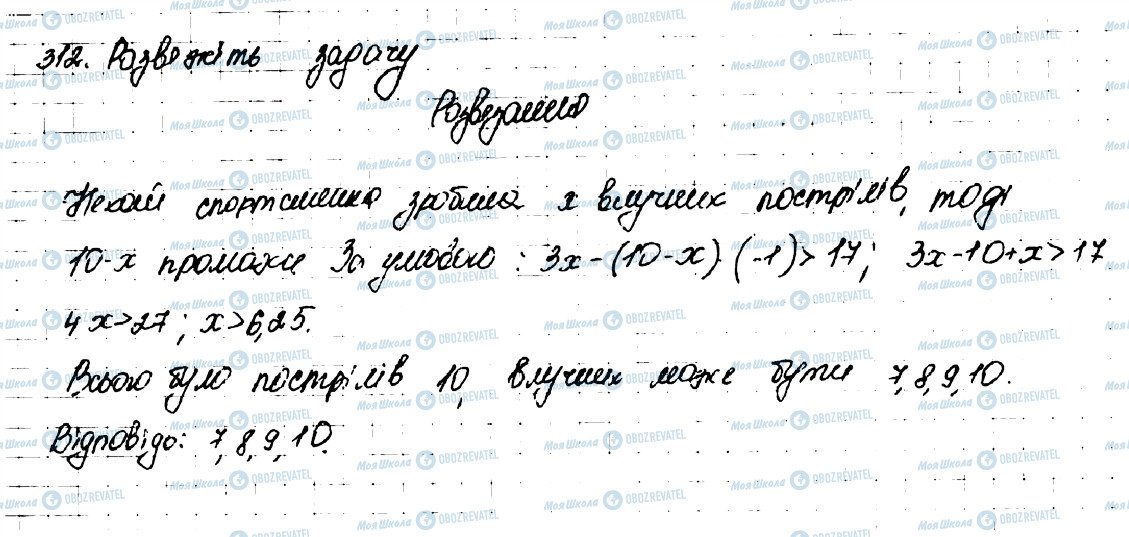 312. Розвяжіть задачу
Розвязання
Нехай спортсменка зробила x влучних пострілів, тоді
10-x промахи За умовою: 3x-(10-x)·(-1)>17; 3x-10+x>17
4x>27; x>6,25.
Всього було пострілів 10, влучних може бути 7,8,9,10.
Відповідь: 7,8,9,10.